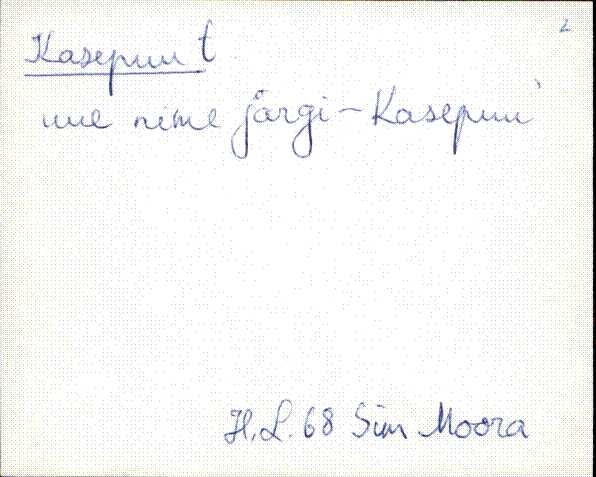 2
Kasepuu t
uue nime järgi - Kasepuu`
H. L. 68 Sim Moora